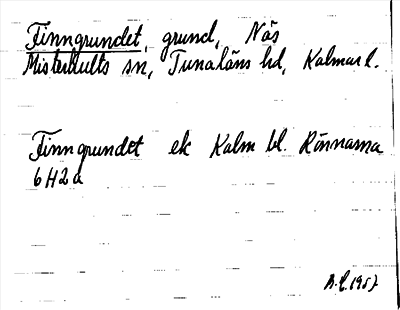 Finngrundet, grund, Näs
Misterhults sn, Tunaläns hd, Kalmar l.
Finngrundet ek Kalm bl. Rönnarna
6H2a
1957